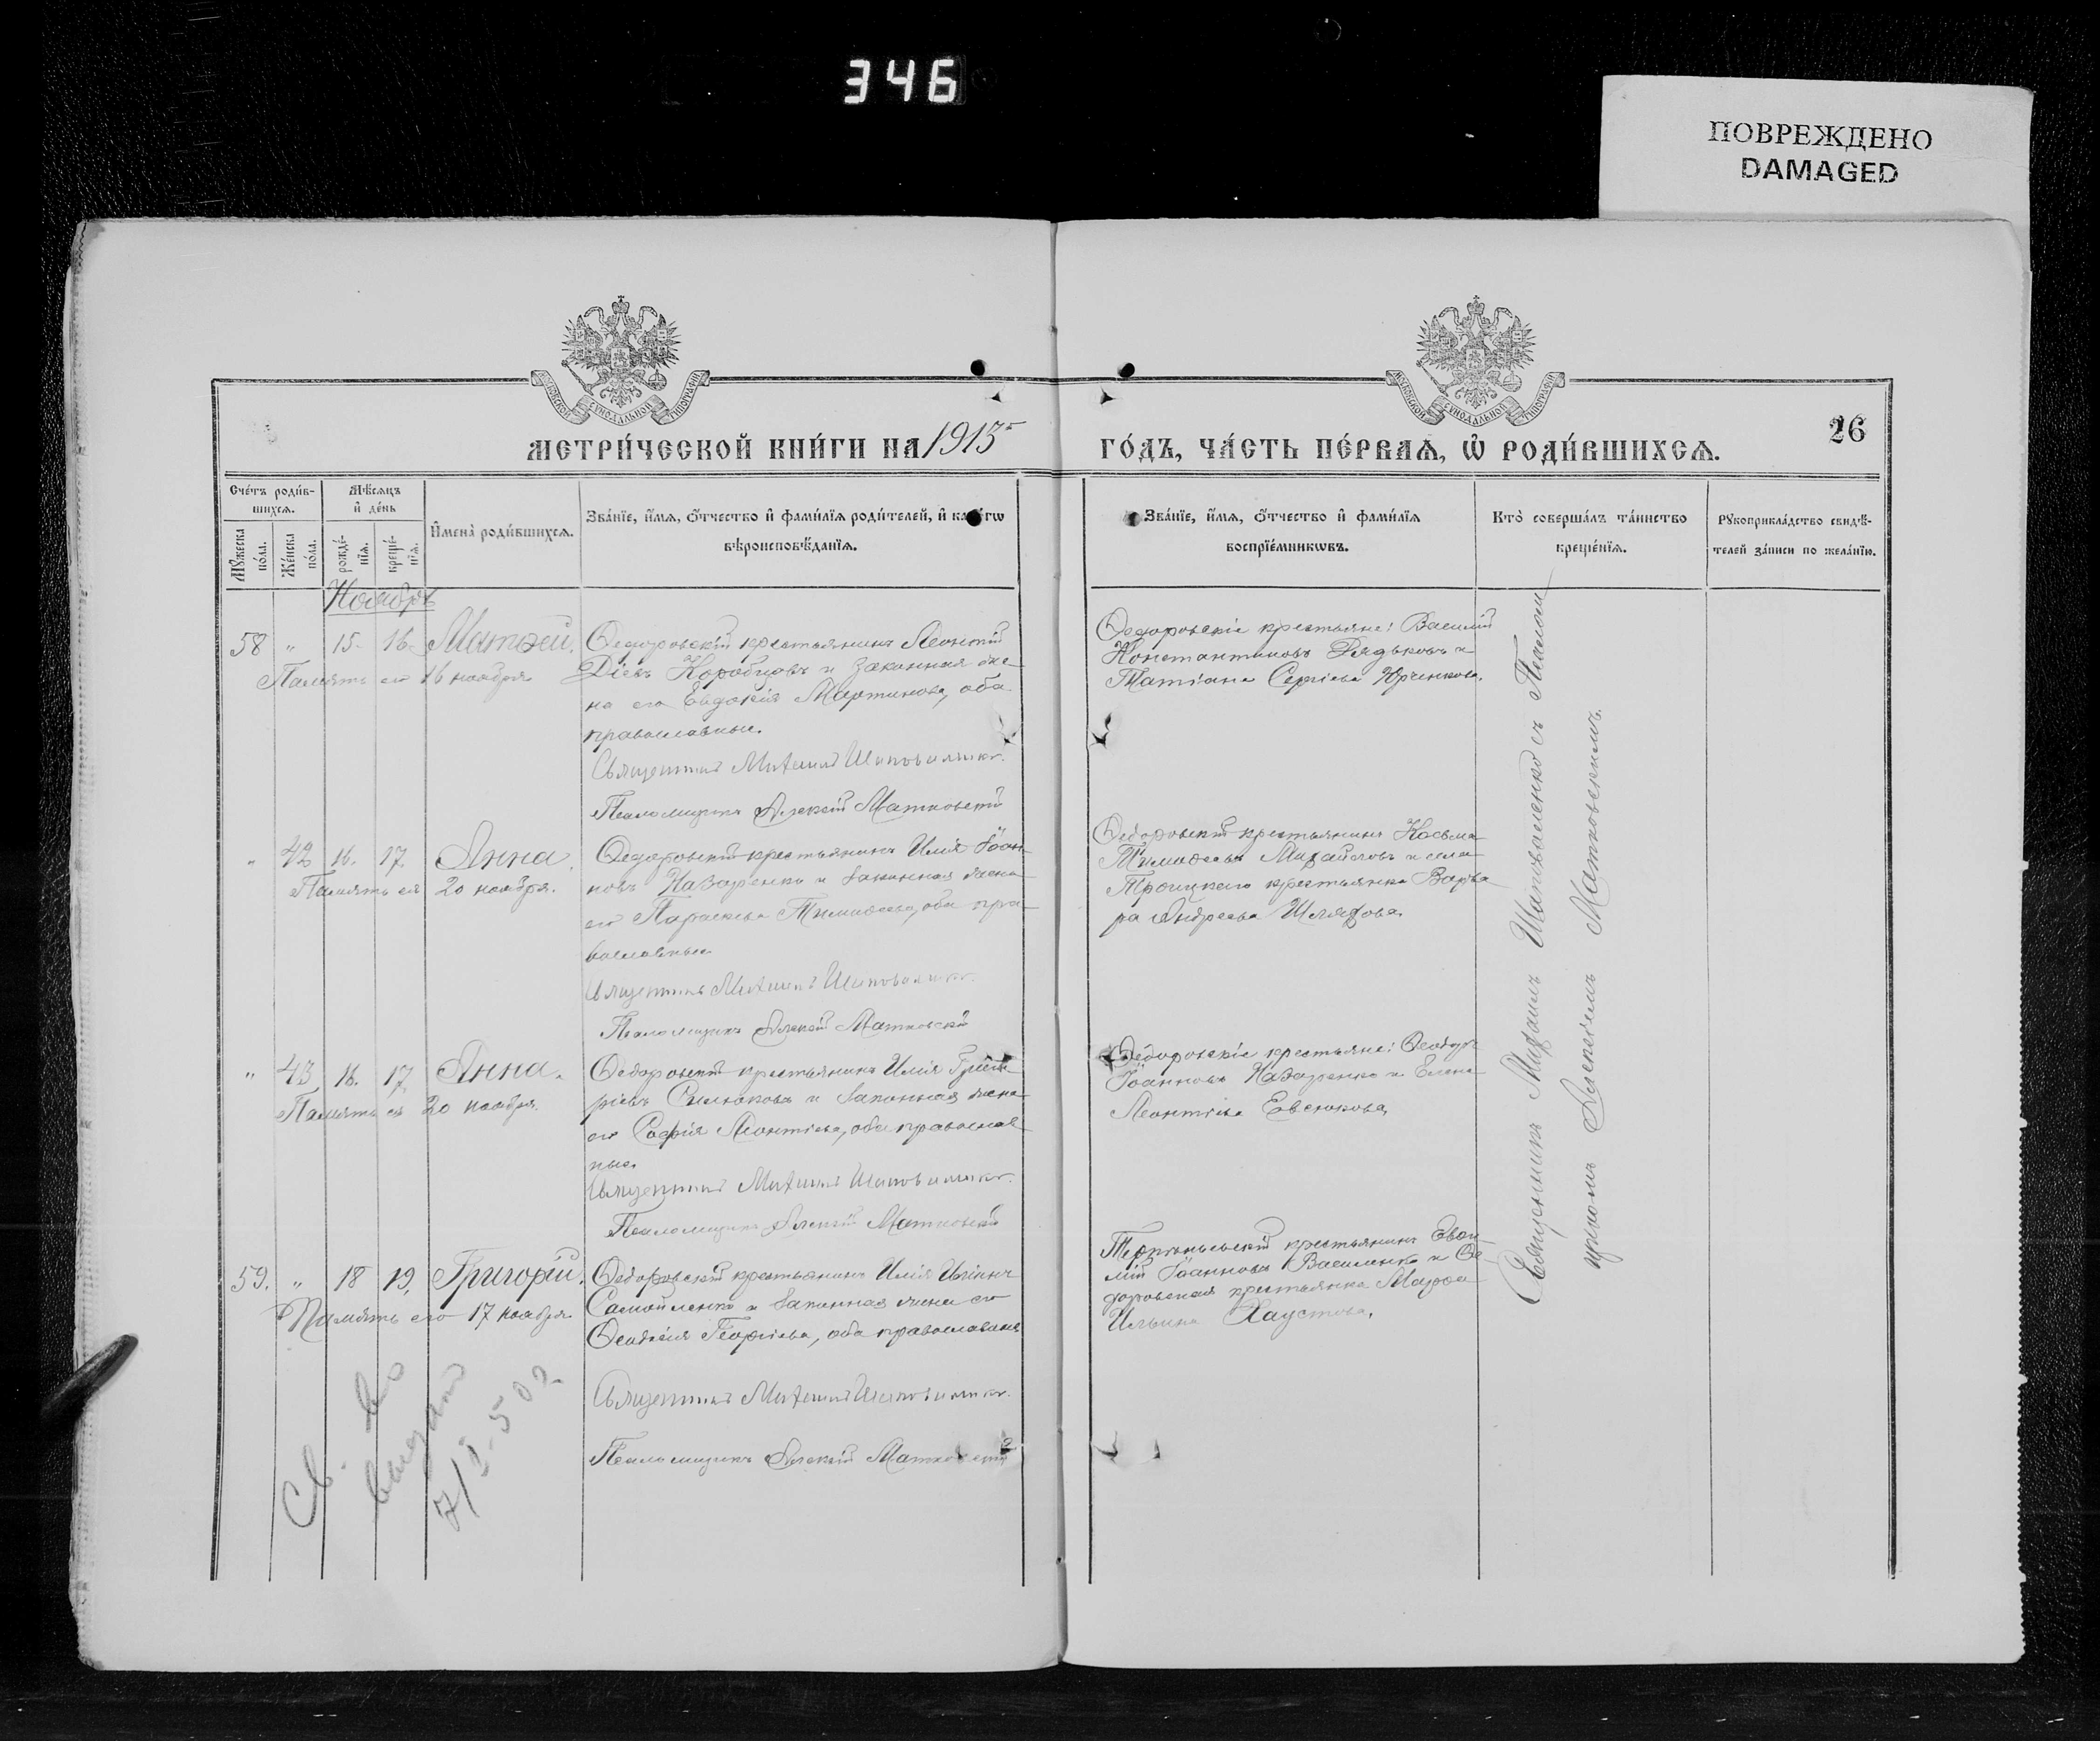 346
ПОВРЕЖДЕНО
DAMAGED
МЕТРИ́ЧЕСКОЙ КНИ́ГИ НА 1915
ГО́ДЪ, ЧА́СТЬ ПЕ́РВАѦ, Ѡ҆ РОДИ́ВШИХСѦ.
26
Сче́тъ роди́в-
шихсѧ.
Мѣ́сѧцъ
и҆ де́нь
Мꙋ́жеска по́ла.
Же́нска по́ла.
рожде́-
нїѧ.
креще́-
нїѧ.
И҆мена̀ роди́вшихсѧ.
Зва́нїе, и҆́мѧ, ѻ҆́тчество и҆ фами́лїѧ роди́телей, и҆ како́гѡ
вѣроисповѣ́данїѧ.
Зва́нїе, и҆́мѧ, ѻ҆́тчество и҆ фами́лїѧ
воспрїе́мникѡвъ.
Кто̀ соверша́лъ та́инство
креще́нїѧ.
Рꙋкоприкла́дство свидѣ́-
телей за́писи по жела́нїю.
Ноябрь
58 " 15. 16. Матѳей.
Память его 16 ноября
Ѳедоровскій крестьянинъ Леонтій
Діевъ Коробцовъ и законная же-
на его Евдокія Мартинова, оба
православные.
Священникъ Михаилъ Шаповаленко.
Псаломщикъ Алексій Матковскій
Ѳедоровскіе крестьяне: Василій
Константиновъ Дядьковъ и
Татіана Сергіева Юрченкова.
" 42 16. 17. Анна.
Память ея 20 ноября.
Ѳедоровскій крестьянинъ Илія Іоан-
новъ Назаренко и законная жена
его Параскева Тимоѳеева, оба пра-
вославные
Священникъ Михаилъ Шаповаленко.
Псаломщикъ Алексій Матковскій
Ѳедоровскій крестьянинъ Косьма
Тимоѳеевъ Михайловъ и села
Троицкаго крестьянка Варва-
ра Андреева Шляхова.
" 43 16. 17. Анна.
Память ея 20 ноября.
Ѳедоровскій крестьянинъ Илія Григо-
ріевъ Силюковъ и законная жена
его Софія Леонтіева, оба православ-
ные.
Священникъ Михаилъ Шаповаленко.
Псаломщикъ Алексій Матковскій
Ѳедоровскіе крестьяне: Ѳеодоръ
Іоанновъ Назаренко и Елена
Леонтіева Евсюкова.
59. " 18 19. Григорій.
Память его 17 ноября.
Ѳедоровскій крестьянинъ Илія
Самойленко и законная жена его
Ѳеодосія Георгіева, оба православные
Священникъ Михаилъ Шаповаленко.
Псаломщикъ Алексій Матковскій
крестьянинъ
Іоанновъ Василенко и Ѳе-
доровская крестьянка Марѳа
Ильина Хаустова.
Священникъ Михаилъ Шаповаленко съ Псалом-
щикомъ Алексіемъ Матковскимъ.
Св. во
выдано